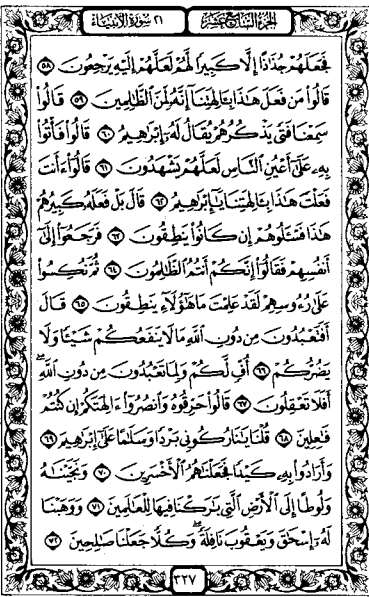 الجزء السابع عشر ٢١ سورة الأنبياء
فَجَعَلَهُمْ جُذَاذًا إِلَّا كَبِيرًا لَّهُمْ لَعَلَّهُمْ إِلَيْهِ يَرْجِعُونَ ٥٨
قَالُوا۟ مَن فَعَلَ هَٰذَا بِـَٔالِهَتِنَآ إِنَّهُۥ لَمِنَ ٱلظَّٰلِمِينَ ٥٩ قَالُوا۟
سَمِعْنَا فَتًى يَذْكُرُهُمْ يُقَالُ لَهُۥٓ إِبْرَٰهِيمُ ٦٠ قَالُوا۟ فَأْتُوا۟
بِهِۦ عَلَىٰٓ أَعْيُنِ ٱلنَّاسِ لَعَلَّهُمْ يَشْهَدُونَ ٦١ قَالُوٓا۟ ءَأَنتَ
فَعَلْتَ هَٰذَا بِـَٔالِهَتِنَا يَٰٓإِبْرَٰهِيمُ ٦٢ قَالَ بَلْ فَعَلَهُۥ كَبِيرُهُمْ
هَٰذَا فَسْـَٔلُوهُمْ إِن كَانُوا۟ يَنطِقُونَ ٦٣ فَرَجَعُوٓا۟ إِلَىٰٓ
أَنفُسِهِمْ فَقَالُوٓا۟ إِنَّكُمْ أَنتُمُ ٱلظَّٰلِمُونَ ٦٤ ثُمَّ نُكِسُوا۟
عَلَىٰ رُءُوسِهِمْ لَقَدْ عَلِمْتَ مَا هَٰٓؤُلَآءِ يَنطِقُونَ ٦٥ قَالَ
أَفَتَعْبُدُونَ مِن دُونِ ٱللَّهِ مَا لَا يَنفَعُكُمْ شَيْـًٔا وَلَا
يَضُرُّكُمْ ٦٦ أُفٍّ لَّكُمْ وَلِمَا تَعْبُدُونَ مِن دُونِ ٱللَّهِ ۖ
أَفَلَا تَعْقِلُونَ ٦٧ قَالُوا۟ حَرِّقُوهُ وَٱنصُرُوٓا۟ ءَالِهَتَكُمْ إِن كُنتُمْ
فَٰعِلِينَ ٦٨ قُلْنَا يَٰنَارُ كُونِى بَرْدًا وَسَلَٰمًا عَلَىٰٓ إِبْرَٰهِيمَ ٦٩
وَأَرَادُوا۟ بِهِۦ كَيْدًا فَجَعَلْنَٰهُمُ ٱلْأَخْسَرِينَ ٧٠ وَنَجَّيْنَٰهُ
وَلُوطًا إِلَى ٱلْأَرْضِ ٱلَّتِى بَٰرَكْنَا فِيهَا لِلْعَٰلَمِينَ ٧١ وَوَهَبْنَا
لَهُۥٓ إِسْحَٰقَ وَيَعْقُوبَ نَافِلَةً ۖ وَكُلًّا جَعَلْنَا صَٰلِحِينَ ٧٢
٣٢٧